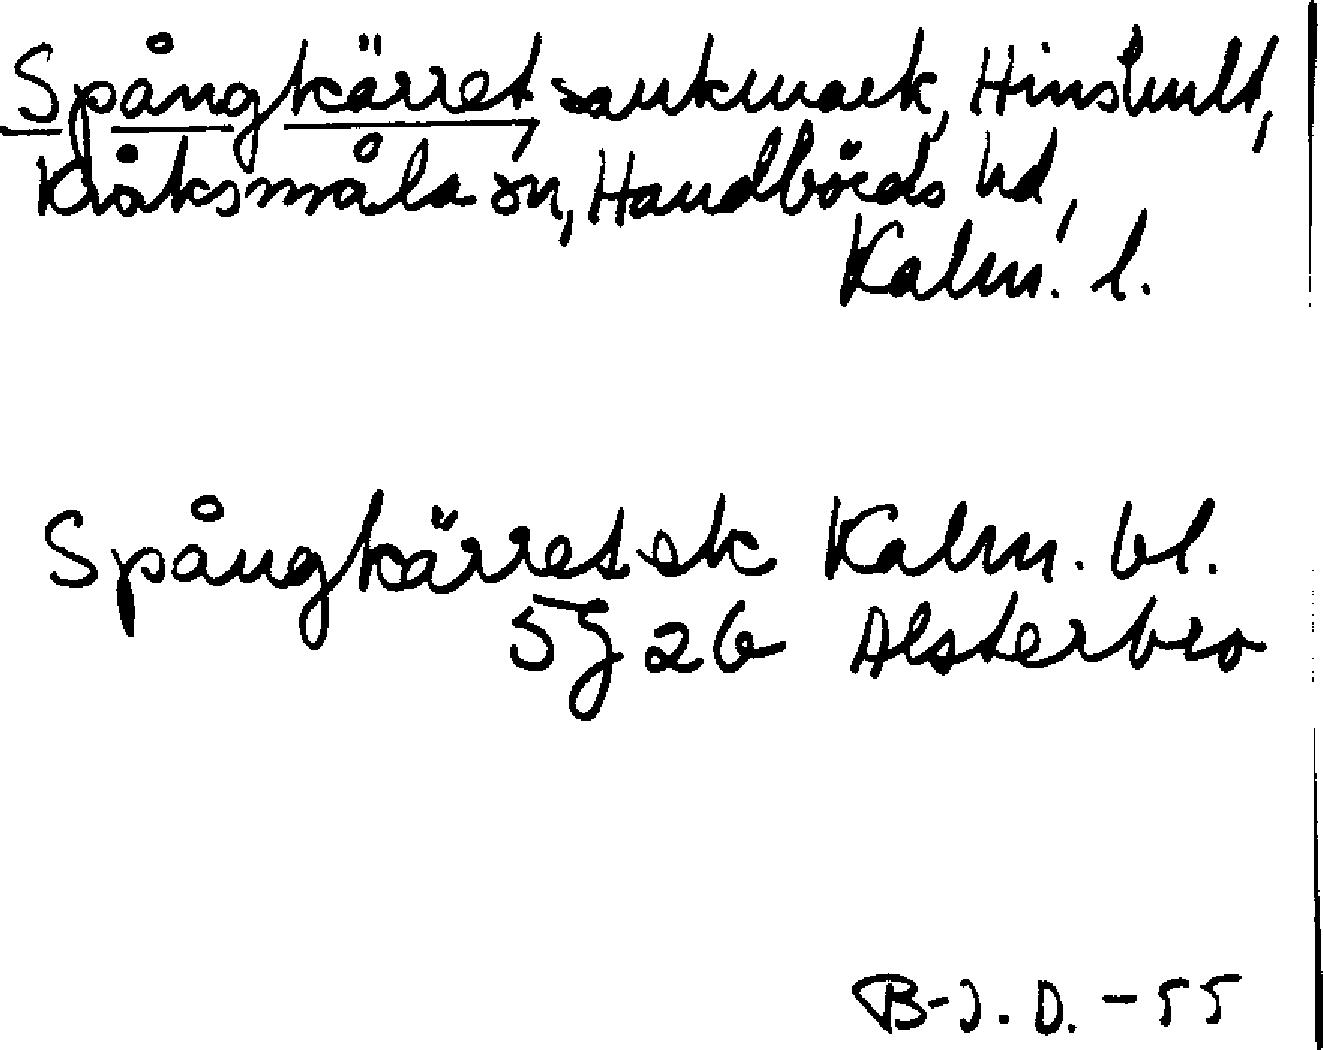 Spångkärret, sankmark, Hinshult,
Kråksmåla sn, Handbörds hd,
Kalm. l.
Spångkärret ek Kalm. bl.
5g 2b Alsterbro
B-J. D. - 55